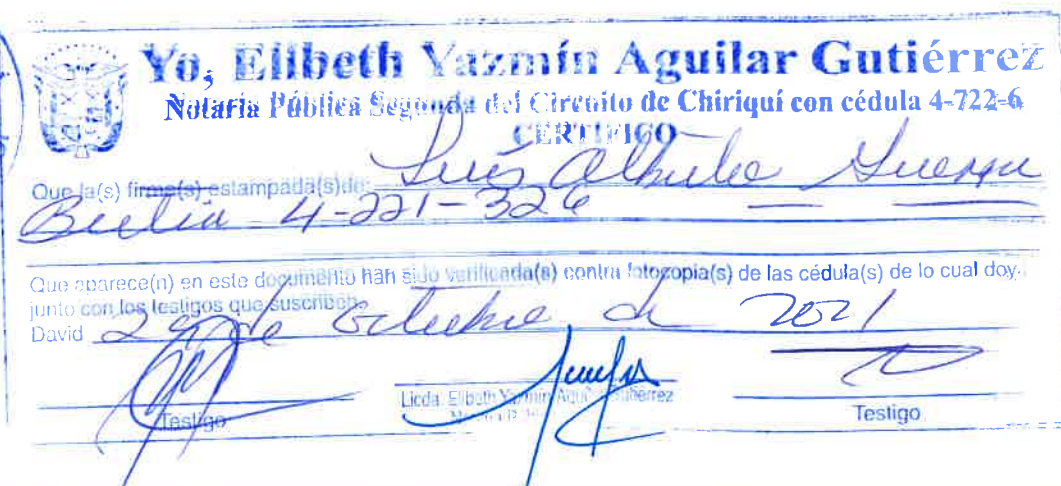 Yo, Elibeth Yazmín Aguilar Gutiérrez
Notaria Pública Segunda del Circuito de Chiriquí con cédula 4-722-6
CERTIFICO
Que la(s) firma(s) estampada(s) de: Luis Alberto Guerra
4-221-326
Que aparece(n) en este documento han sido verificada(s) contra fotocopia(s) de las cédula(s) de lo cual doy
junto con los testigos que suscriben
David de Octubre de 2021
Licda. Elibeth Yazmín Aguilar Gutiérrez
Testigo
Testigo